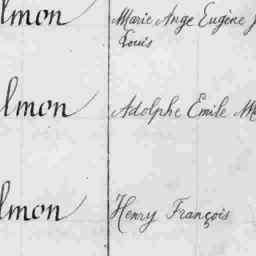 lmon Marie Ange Eugène
Louis
lmon Adolphe Emile
lmon Henry François